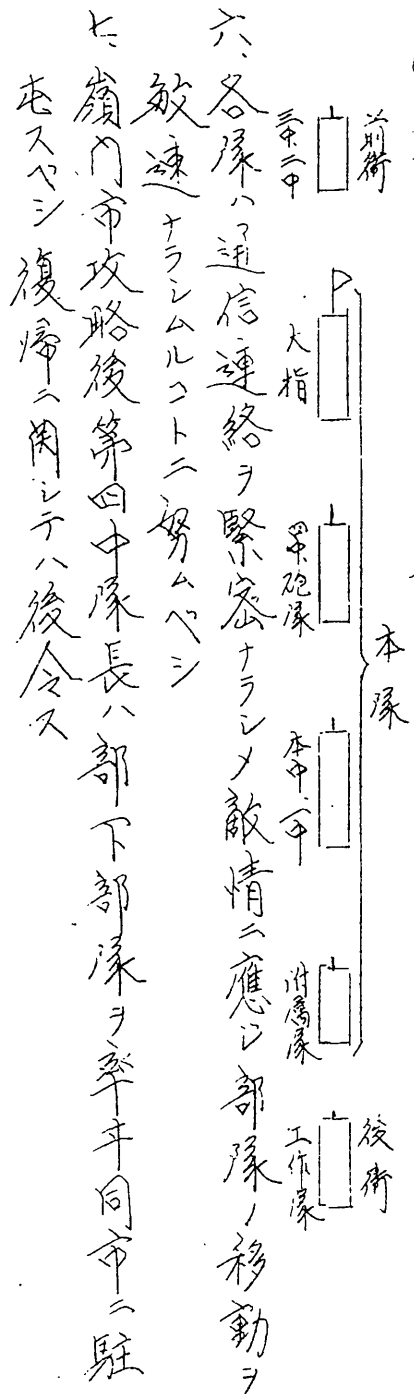 前衛
三中、二中
本隊
大指
四中、砲隊
本中、一中
附属隊
後衛
工作隊
六、各隊ハ通信連絡ヲ緊密ナラシメ敵情ニ應シ部隊ノ移動ヲ
敏速ナラシムルコトニ努ムベシ
七、嶺門市攻略後第四中隊長ハ部下部隊ヲ率ヰ同市ニ駐
屯スベシ復帰ニ関シテハ後令ス